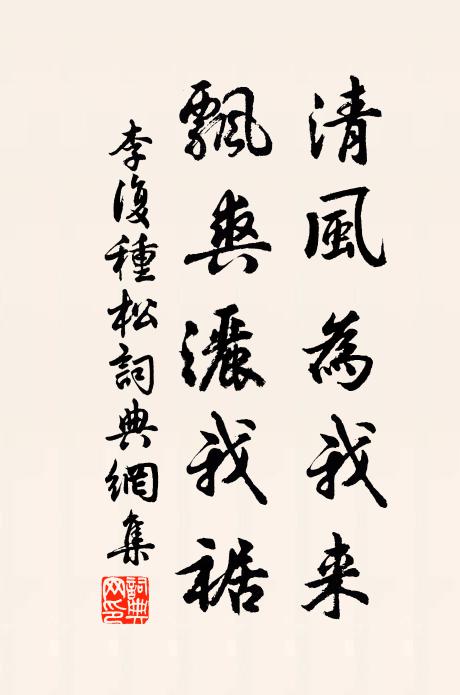 清風為我来
飄爽灑我裾
李復種松詞典網集
詞典网印